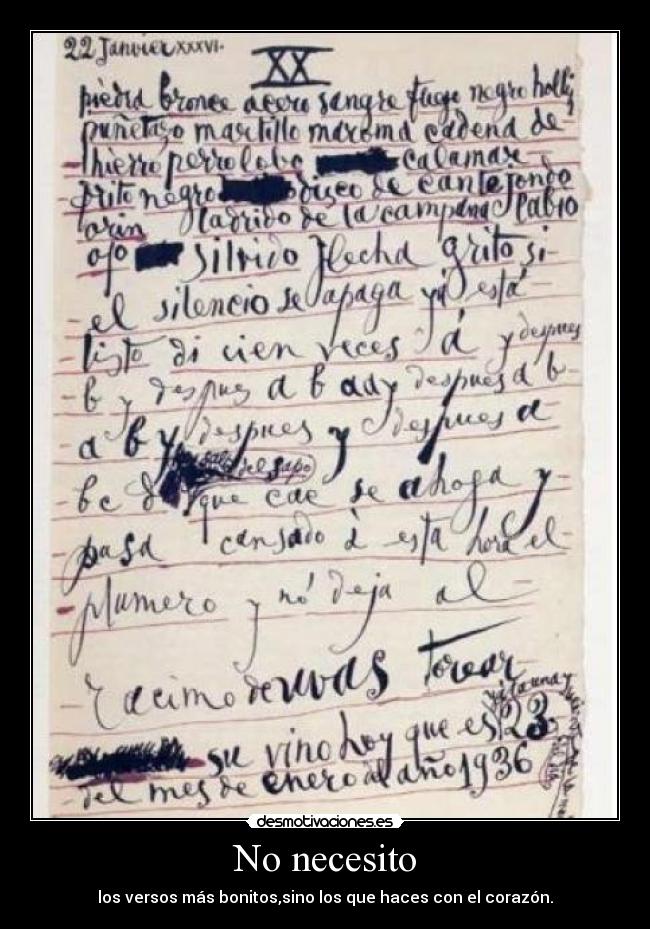 22 Janvier XXXVI.
XX
piedra bronce acero sangre fuego negro
puñetazo martillo maroma cadena de
hierro perro lobo calamar
frito negro disco de cante jondo
orin ladrido de la campana labio
ojo silvido flecha grito si
el silencio se apaga ya está
listo di cien veces á y despues
b y despues a b a a y despues a b
a b y despues y despues a
b c d del sapo
que cae se ahoga y
pasa cansado à esta hora el
plumero y nó deja al
racimo de uvas torear
su vino hoy que es 23
del mes de enero del año 1936
desmotivaciones.es
No necesito
los versos más bonitos,sino los que haces con el corazón.